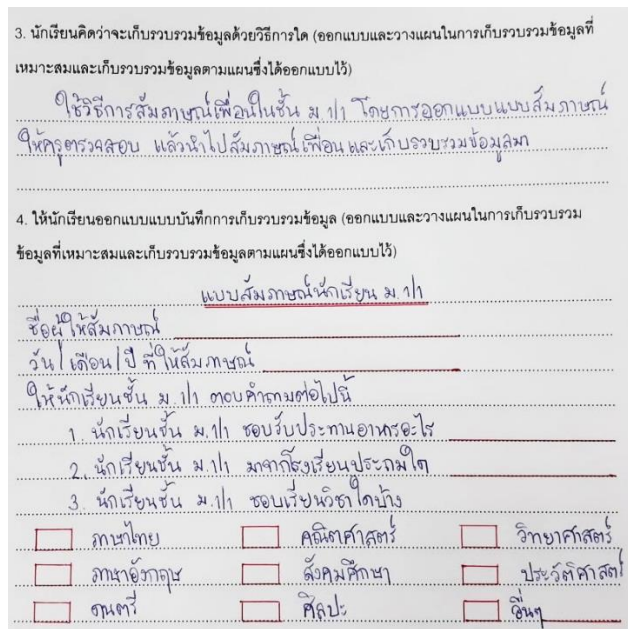 3. นักเรียนคิดว่าจะเก็บรวบรวมข้อมูลด้วยวิธีการใด (ออกแบบและวางแผนในการเก็บรวบรวมข้อมูลที่
เหมาะสมและเก็บรวบรวมข้อมูลตามแผนซึ่งได้ออกแบบไว้)
ใช้วิธีการสัมภาษณ์เพื่อนในชั้น ม.1/1 โดยการออกแบบแบบสัมภาษณ์
ให้ครูตรวจสอบ แล้วนำไปสัมภาษณ์เพื่อนและเก็บรวบรวมข้อมูลมา
4. ให้นักเรียนออกแบบแบบบันทึกการเก็บรวบรวมข้อมูล (ออกแบบและวางแผนในการเก็บรวบรวม
ข้อมูลที่เหมาะสมและเก็บรวบรวมข้อมูลตามแผนซึ่งได้ออกแบบไว้)
แบบสัมภาษณ์นักเรียน ม.1/1
ชื่อผู้ให้สัมภาษณ์
วัน/เดือน/ปี ที่ให้สัมภาษณ์
ให้นักเรียนชั้น ม.1/1 ตอบคำถามต่อไปนี้
1. นักเรียนชั้น ม.1/1 ชอบรับประทานอาหารอะไร
2. นักเรียนชั้น ม.1/1 มาจากโรงเรียนประถมใด
3. นักเรียนชั้น ม.1/1 ชอบเรียนวิชาใดบ้าง
ภาษาไทย คณิตศาสตร์ วิทยาศาสตร์
ภาษาอังกฤษ สังคมศึกษา ประวัติศาสตร์
ดนตรี ศิลปะ อื่นๆ